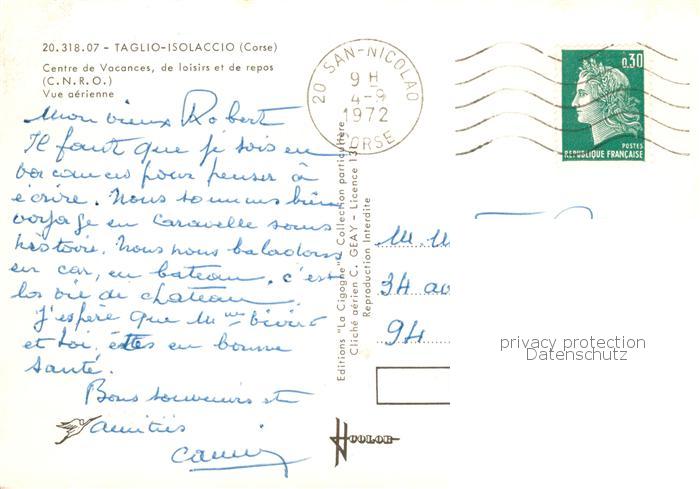 20.318.07 - TAGLIO-ISOLACCIO (Corse)
Centre de Vacances, de loisirs et de repos
(C.N.R.O.)
Vue aérienne
Mon vieux Robert
Il faut que je sois en
vacances pour penser à
écrire. Nous sommes bien
voyagé en caravelle sans
histoire. Nous nous baladons
en car, en bateau, c'est
la vie de chateau.
J'espère que Mme
et toi, êtes en bonne
santé.
Bons souvenirs et
amitiés
20 SAN-NICOLAO
9 H
4-9
1972
CORSE
0,30
POSTES
REPUBLIQUE FRANÇAISE
Editions "La Cigogne" Collection particulière
Cliché aérien C. GEAY - Licence 131
Reproduction Interdite
M. M
34 av
94
privacy protection
Datenschutz
COLOR